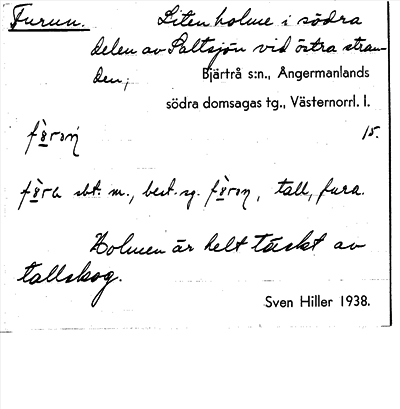 Furun. Liten holme i södra
delen av Saltsjön vid östra stran-
den; Bjärtrå s:n., Ångermanlands
södra domsagas tg., Västernorrl. l.
15.
sbt. m., best. sg. tall, fura.
Holmen är helt täckt av
tallskog.
Sven Hiller 1938.